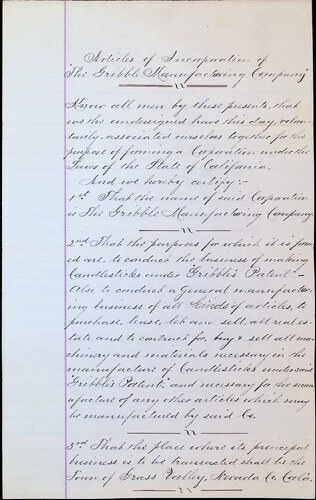 Articles of Incorporation of
"The Gribble Manufacturing Company"
Know all men by these presents, that
we the undersigned have this day, volun-
tarily associated ourselves together for the
purpose of forming a Corporation under the
Laws of the State of California.
And we hereby certify:-
1st That the name of said Corporation
is The Gribble Manufacturing Company.
2nd That the purposes for which it is form-
ed are, to conduct the business of making
Candlesticks under "Gribble's Patent"-
Also to conduct a General manufactur-
ing business of all kinds of articles, to
purchase, lease, let and sell, all real es-
tate and to contract for, buy & sell all ma-
chinery and materials necessary in the
manufacture of Candlesticks under said
"Gribble's Patent," and necessary for the man-
ufacture of any other articles which may
be manufactured by said Co.
3rd That the place where its principal
business is to be transacted shall be the
Town of Grass Valley, Nevada Co. Cal'a.